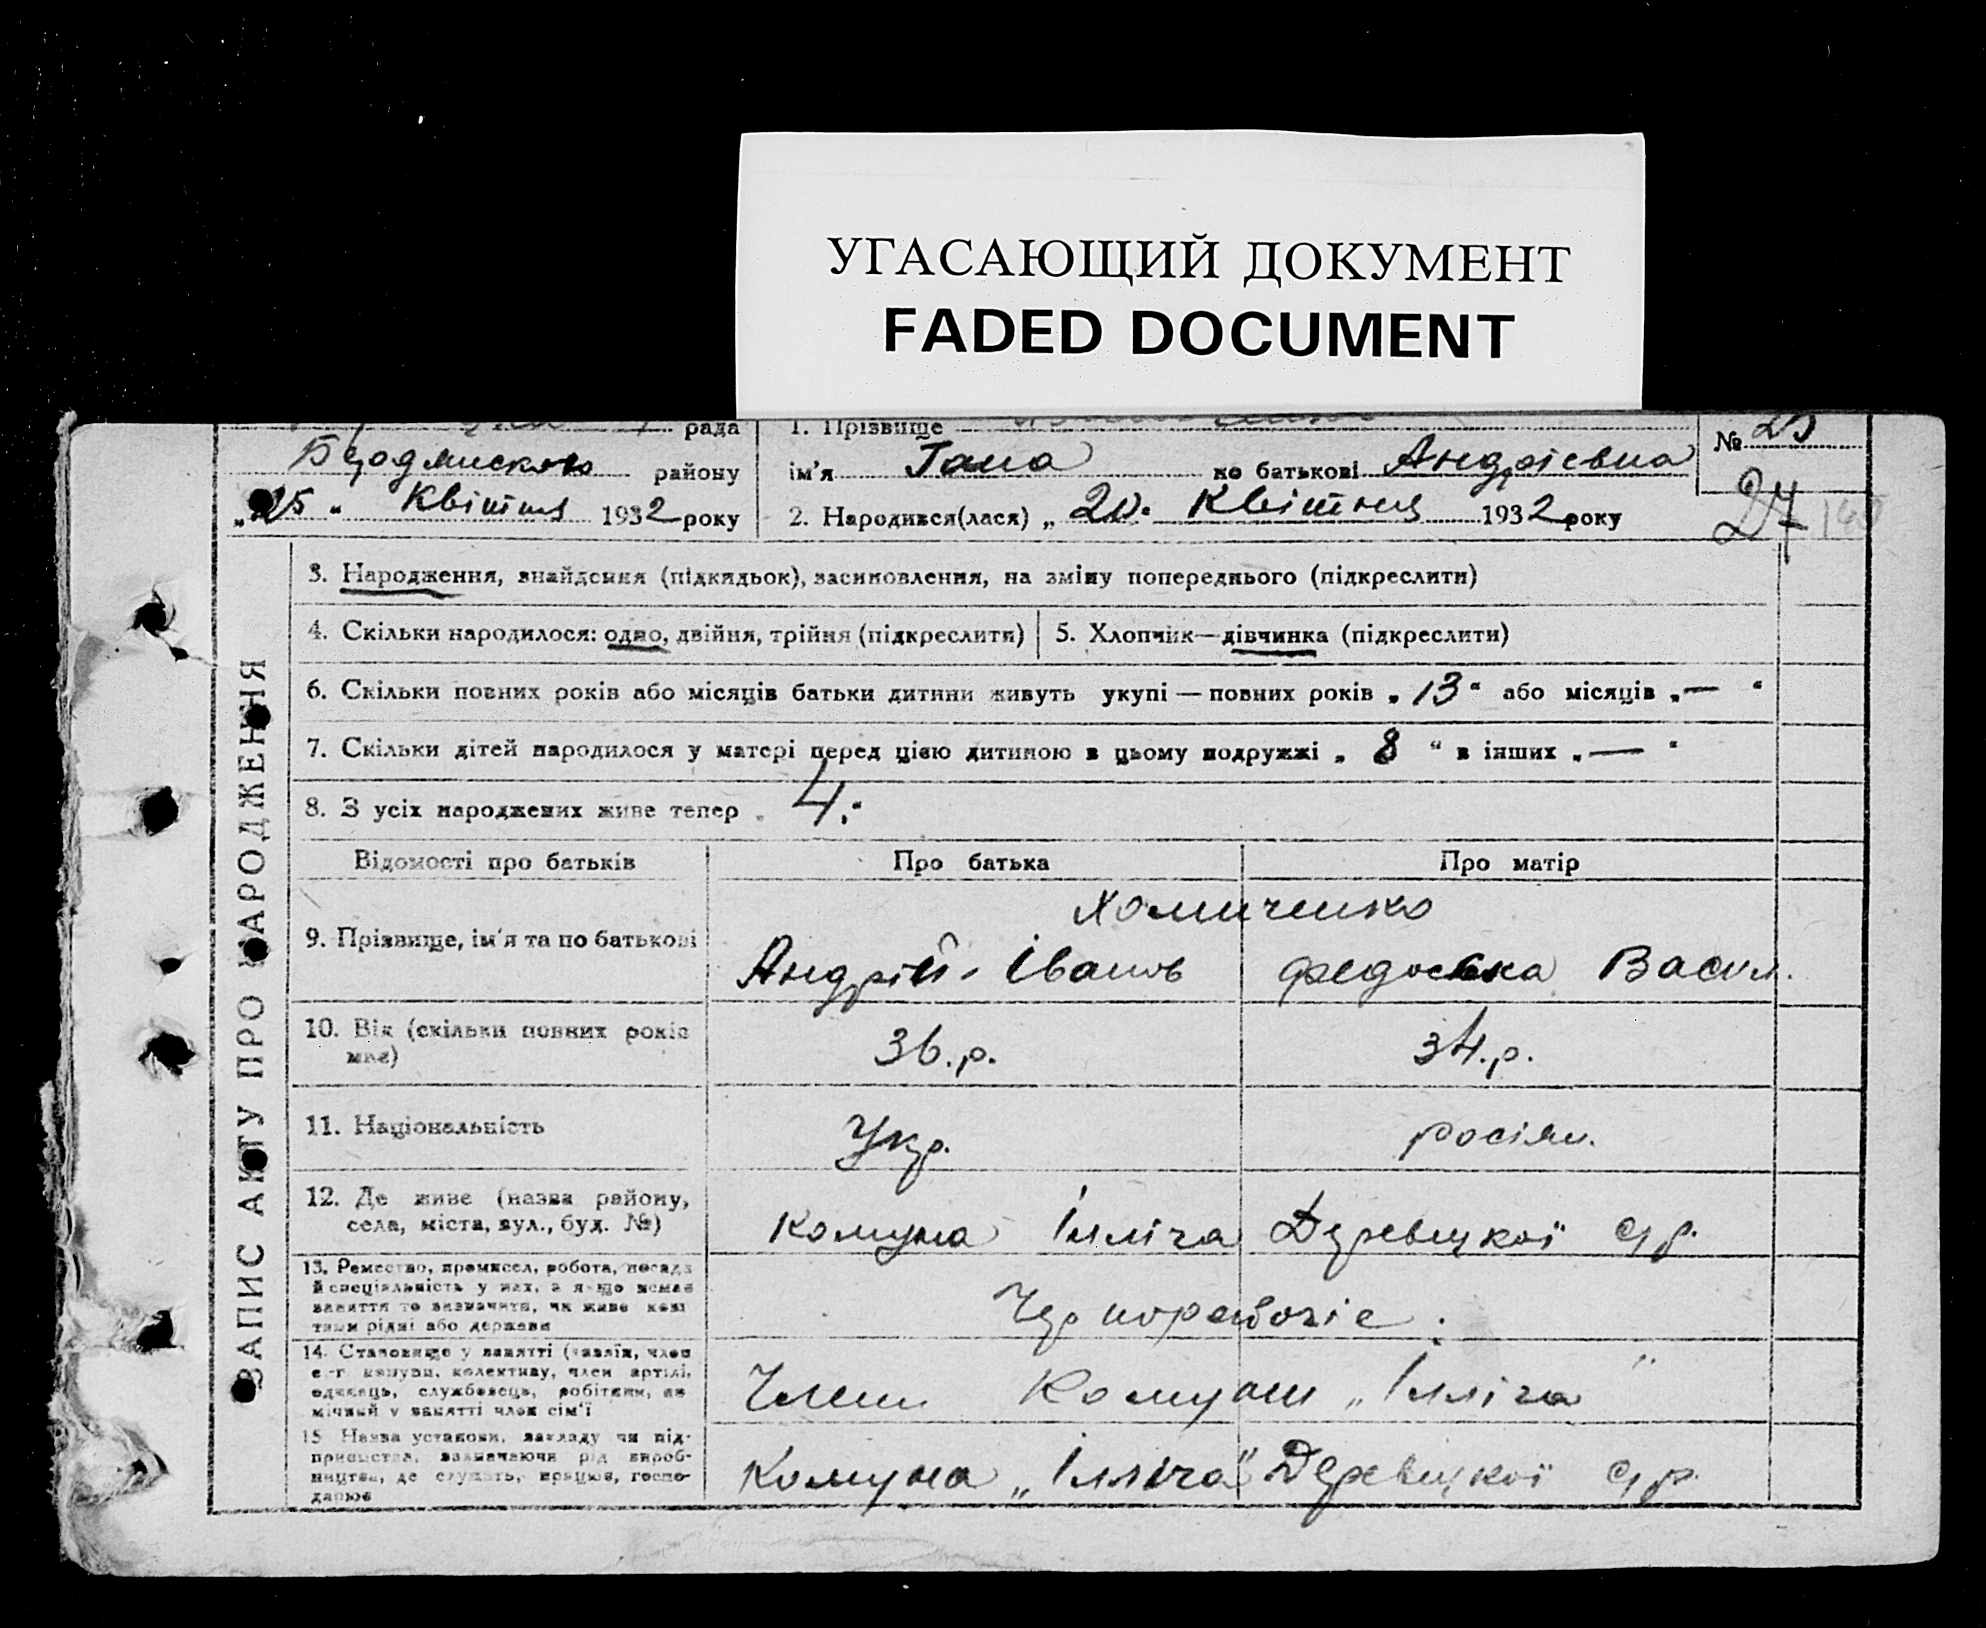 УГАСАЮЩИЙ ДОКУМЕНТ
FADED DOCUMENT
рада
району
„25“ Квітня 1932 року
1. Прізвище
ім'я Гана по батькові Андрієвна
2. Народився(лася) „20. Квітня 1932 року
№ 25
27
ЗАПИС АКТУ ПРО НАРОДЖЕННЯ
3. Народження, знайдення (підкидьок), засиновлення, на зміну попереднього (підкреслити)
4. Скільки народилося: одно, двійня, трійня (підкреслити)
5. Хлопчик—дівчинка (підкреслити)
6. Скільки повних років або місяців батьки дитини живуть укупі — повних років „13“ або місяців „—“
7. Скільки дітей народилося у матері перед цією дитиною в цьому подружжі „8“ в інших „—“
8. З усіх народжених живе тепер 4.
Відомості про батьків
Про батька
Про матір
Хомиченко
9. Прізвище, ім'я та по батькові
Андрій Іванов
Федоська Васил.
10. Вік (скільки повних років
має)
36.р.
34.р.
11. Національність
Укр.
росіян.
12. Де живе (назва району,
села, міста, вул., буд. №)
Комуна Ілліча Деревецкої с/р.
13. Ремество, промисел, робота, посада
й спеціяльність у них, а якщо немає
заняття то зазначити, чи живе кош
тами рідні або держави
Чорнорабочіе.
14. Становище у занятті (хазяїн, член
комуни, колективу, член артілі,
одинець, службовець, робітник, по
мічний у занятті член сім'ї
Член Комуни „Ілліча"
15 Назва установи, закладу чи під-
приємства, зазначаючи рід вироб-
ництва, де служить, працює, госпо-
дарює
Комуна „Ілліча" Деревецкої с/р.